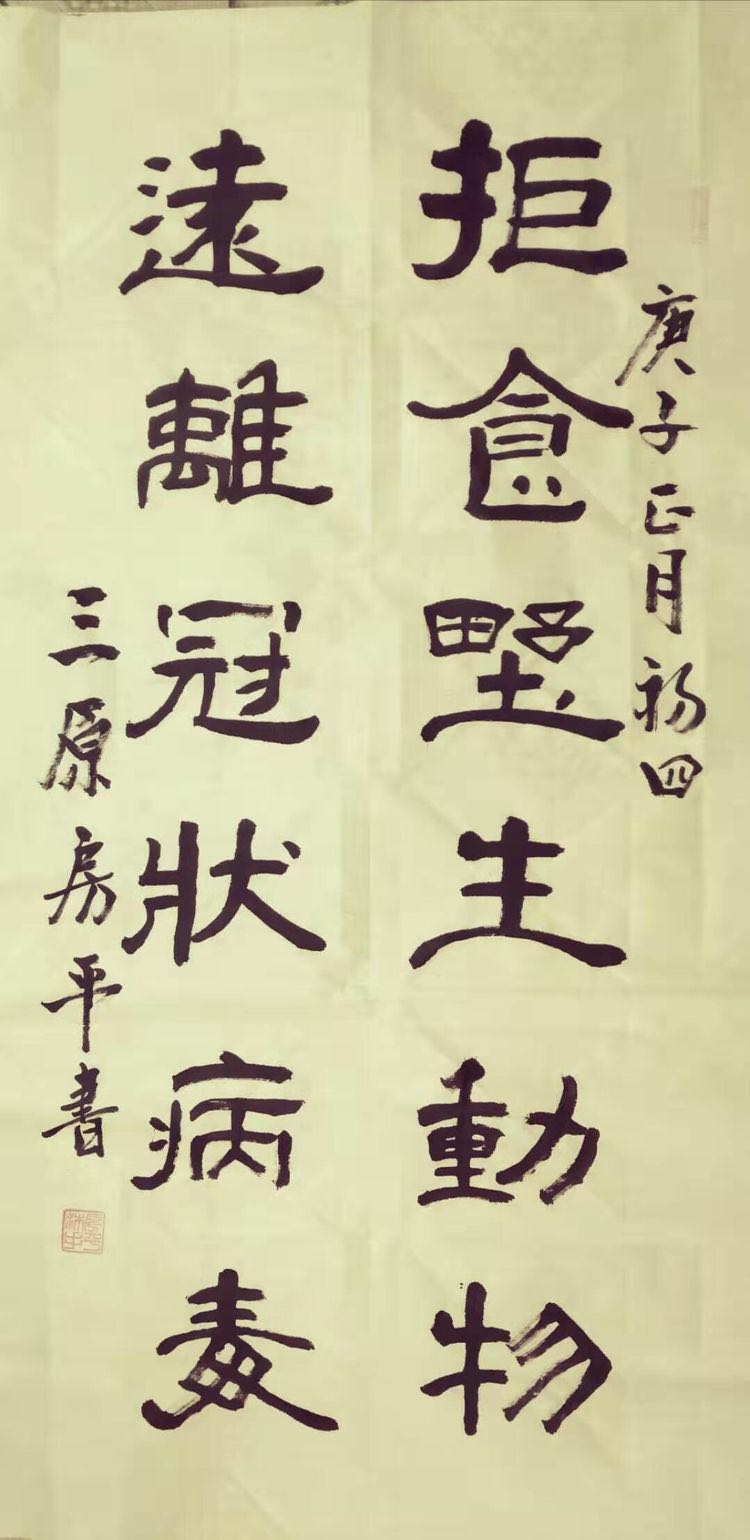 庚子正月初四
拒食野生動物
遠離冠狀病毒
三原房平書